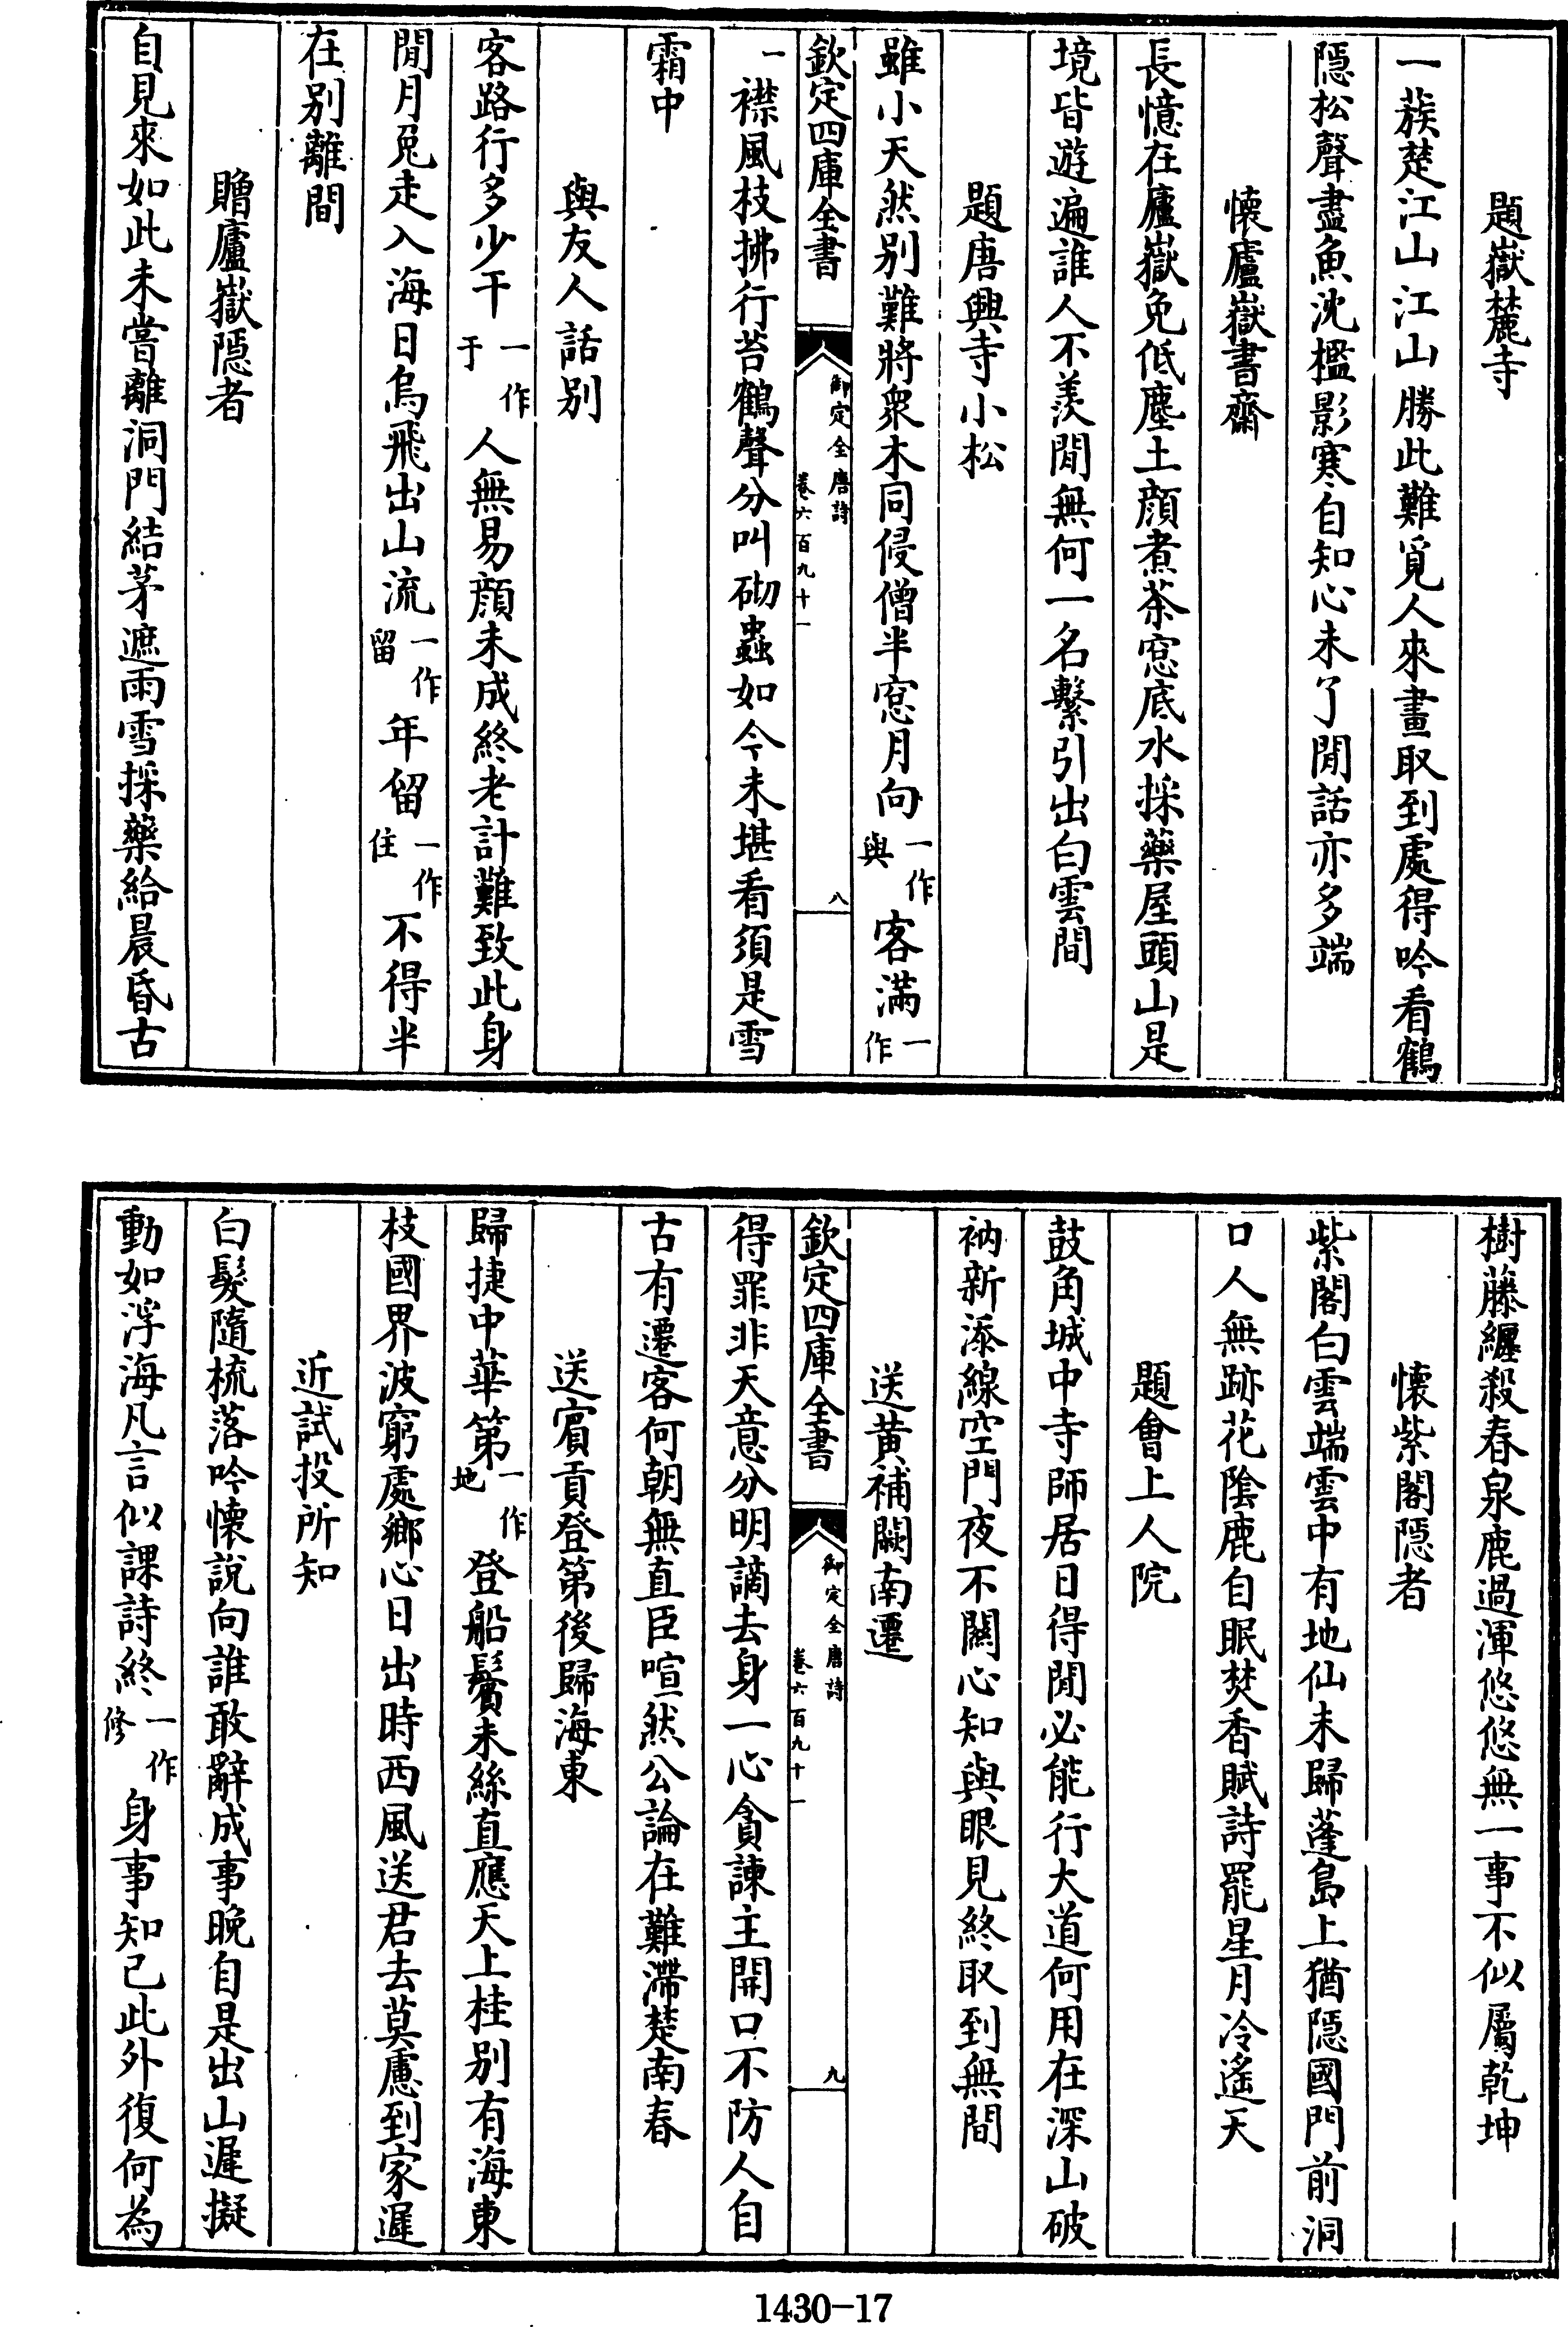 題嶽麓寺
一蔟楚江山江山勝此難覓人來畫取到處得吟看鶴
隱松聲盡魚沈檻影寒自知心未了閒話亦多端
懷廬嶽書齋
長憶在廬嶽免低塵土顔煮茶窓底水採藥屋頭山是
境皆遊遍誰人不羨閒無何一名繫引出白雲間
題唐興寺小松
雖小天然别難將衆木同侵僧半窓月向一作與客滿一作
欽定四庫全書
御定全唐詩
卷六百九十一
八
一襟風枝拂行苔鶴聲分叫砌蟲如今未堪看須是雪
霜中
與友人話别
客路行多少干一作于人無易顔未成終老計難致此身
閒月兔走入海日烏飛出山流一作留年留一作住不得半
在别離間
贈廬嶽隱者
自見來如此未嘗離洞門結茅遮雨雪採藥給晨昏古
樹藤纒殺春泉鹿過渾悠悠無一事不似屬乾坤
懷紫閣隱者
紫閣白雲端雲中有地仙未歸蓬島上猶隱國門前洞
口人無跡花陰鹿自眠焚香賦詩罷星月冷遙天
題會上人院
鼓角城中寺師居日得閒必能行大道何用在深山破
衲新添線空門夜不關心知與眼見終取到無間
送黄補闕南遷
欽定四庫全書
御定全唐詩
卷六百九十一
九
得罪非天意分明謫去身一心貪諫主開口不防人自
古有遷客何朝無直臣喧然公論在難滯楚南春
送賔貢登第後歸海東
歸捷中華第一作地登船鬢未絲直應天上桂别有海東
枝國界波窮處鄉心日出時西風送君去莫慮到家遲
近試投所知
白髮隨梳落吟懷說向誰敢辭成事晚自是出山遲擬
動如浮海凡言似課詩終一作修身事知己此外復何為
1430-17